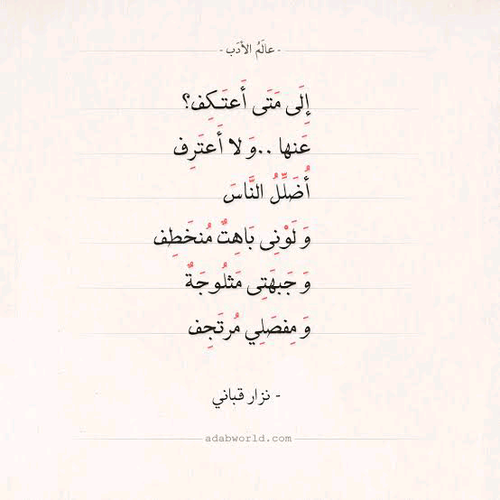 - عالَمُ الأدَب -
إِلَى مَتَى أَعتَكِف؟
عَنها ..وَ لا أَعتَرِف
أُضَلِّلُ النَّاسَ
وَ لَوْنِى بَاهِتٌ مُنخَطِف
وَ جَبهَتِى مَثلُوجَةٌ
وَ مِفصَلِي مُرتَجِف
- نزار قباني
adabworld.com